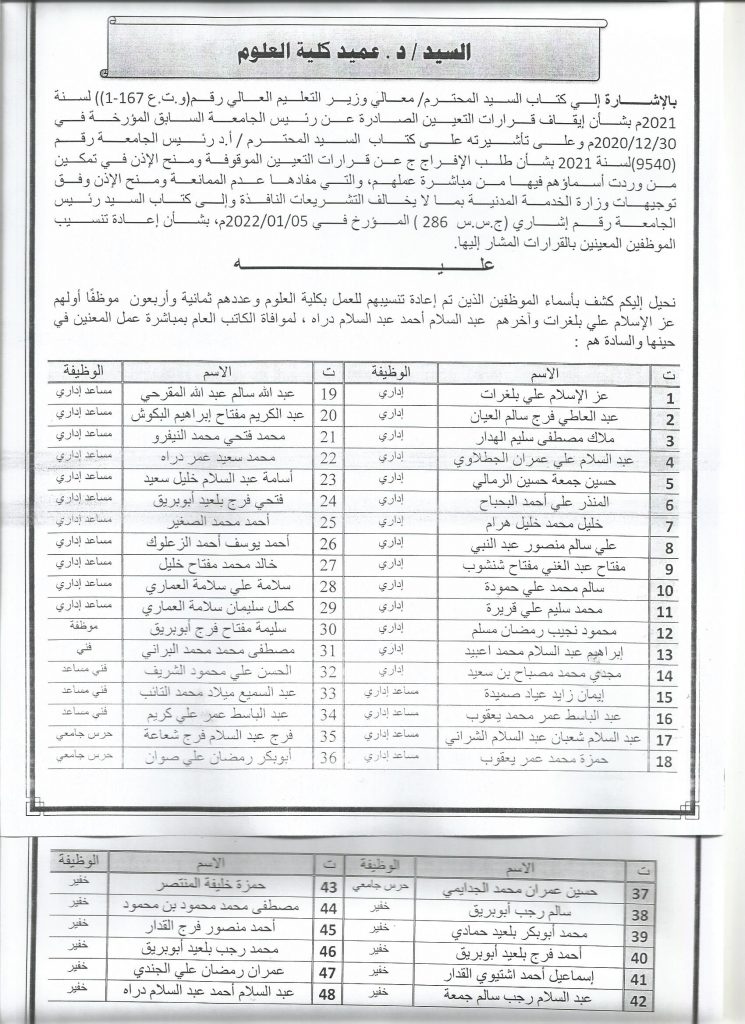 السيد / د . عميد كلية العلوم
بالإشـــــارة إلي كتـاب السيد المحترم/ معالي وزيـر التعليـم العالي رقـم(و.ت.ع 167-1)) لسنة
2021م بشـأن إيقـاف قـرارات التعييـن الصـادرة عن رئيـس الجامعـة السـابق المؤرخـة في
2020/12/30م وعلـى تـأشيرته علـى كتـاب السيـد المحتـرم / أ.د رئيـس الجامعـة رقـم
(9540)لسنة 2021 بشأن طلب الإفراج ج عن قرارات التعيين الموقوفة ومنح الإذن في تمكين
مـن وردت أسمـاؤهم فيهـا مـن مباشرة عملهـم، والتي مفادها عدم الممانعة ومنح الإذن وفق
توجيهـات وزارة الخدمـة المدنيـة بمـا لا يخـالف التشريعـات النـافذة وإلـى كتـاب السيـد رئيـس
الجامعـة رقـم إشـاري (ج.س.س 286 ) المـؤرخ فـي 2022/01/05م، بشـأن إعـادة تنسيـب
الموظفين المعينين بالقرارات المشار إليها.
عليـــــــه
نحيل إليكم كشف بأسماء الموظفين الذين تم إعادة تنسيبهم للعمل بكلية العلوم وعددهم ثمانية وأربعون موظفًا أولهم
عز الإسلام علي بلغرات وآخرهم عبد السلام أحمد عبد السلام دراه ، لموافاة الكاتب العام بمباشرة عمل المعنين في
حينها والسادة هم :
ت الاسم الوظيفة ت الاسم الوظيفة
1 عز الإسلام علي بلغرات إداري 19 عبد الله سالم عبد الله المقرحي مساعد إداري
2 عبد العاطي فرج سالم العيان إداري 20 عبد الكريم مفتاح إبراهيم البكوش مساعد إداري
3 ملاك مصطفى سليم الهدار إداري 21 محمد فتحي محمد النيفرو مساعد إداري
4 عبد السلام علي عمران الجطلاوي إداري 22 محمد سعيد عمر دراه مساعد إداري
5 حسين جمعة حسين الرمالي إداري 23 أسامة عبد السلام خليل سعيد مساعد إداري
6 المنذر علي أحمد البحباح إداري 24 فتحي فرج بلعيد أبوبريق مساعد إداري
7 خليل محمد خليل هرام إداري 25 أحمد محمد الصغير مساعد إداري
8 علي سالم منصور عبد النبي إداري 26 أحمد يوسف أحمد الزعلوك مساعد إداري
9 مفتاح عبد الغني مفتاح شنشوب إداري 27 خالد محمد مفتاح خليل مساعد إداري
10 سالم محمد علي حمودة إداري 28 سلامة علي سلامة العماري مساعد إداري
11 محمد سليم علي قريرة إداري 29 كمال سليمان سلامة العماري مساعد إداري
12 محمود نجيب رمضان مسلم إداري 30 سليمة مفتاح فرج أبوبريق موظفة
13 إبراهيم عبد السلام محمد اعبيد إداري 31 مصطفى محمد محمد البراني فني
14 مجدي محمد مصباح بن سعيد إداري 32 الحسن علي محمود الشريف فني مساعد
15 إيمان زايد عياد صميدة مساعد إداري 33 عبد السميع ميلاد محمد التائب فني مساعد
16 عبد الباسط عمر محمد يعقوب مساعد إداري 34 عبد الباسط عمر علي كريم فني مساعد
17 عبد السلام شعبان عبد السلام الشراني مساعد إداري 35 فرج عبد السلام فرج شعاعة حرس جامعي
18 حمزة محمد عمر يعقوب مساعد إداري 36 أبوبكر رمضان علي صوان حرس جامعي
ت الاسم الوظيفة ت الاسم الوظيفة
37 حسين عمران محمد الجدايمي حرس جامعي 43 حمزة خليفة المنتصر خفير
38 سالم رجب أبوبريق خفير 44 مصطفى محمد محمود بن محمود خفير
39 محمد أبوبكر بلعيد حمادي خفير 45 أحمد منصور فرج القدار خفير
40 أحمد فرج بلعيد أبوبريق خفير 46 محمد رجب بلعيد أبوبريق خفير
41 إسماعيل أحمد اشتيوي القدار خفير 47 عمران رمضان علي الجندي خفير
42 عبد السلام رجب سالم جمعة خفير 48 عبد السلام أحمد عبد السلام دراه خفير